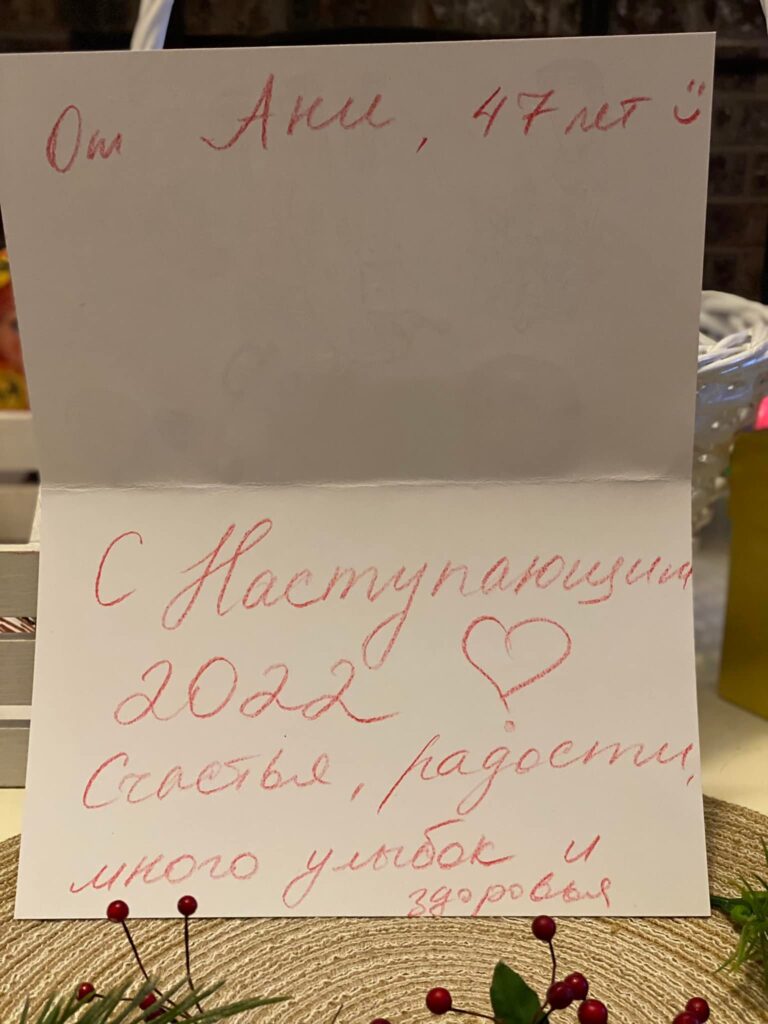 От Ани, 47 лет
С Наступающим
2022
Счастья, радости,
много улыбок и
здоровья